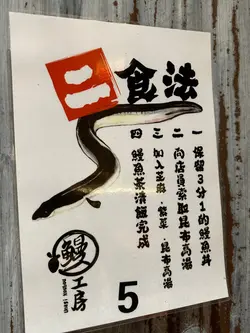 二食法
一 保留3分1的鰻魚丼
二 向店員索取昆布高湯
三 加入芝麻．紫菜．昆布高湯
四 鰻魚茶漬飯完成
鰻工房
5